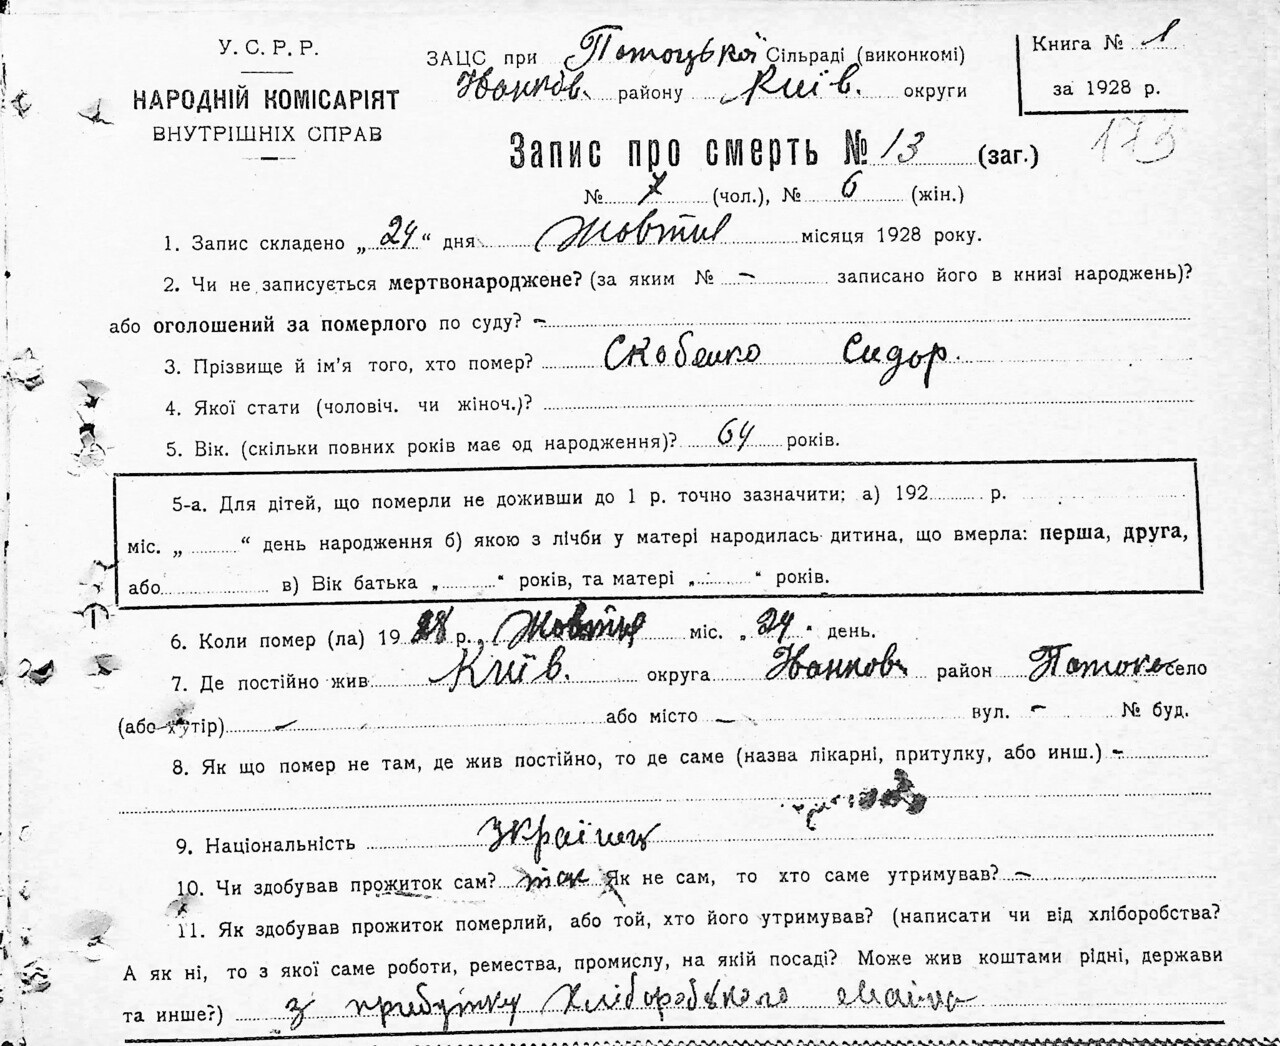 У. С. Р. Р.
НАРОДНІЙ КОМІСАРІЯТ
ВНУТРІШНІХ СПРАВ
ЗАЦС при Потоцької Сільраді (виконкомі)
Іванков. району Київ. округи
Книга № 1
за 1928 р.
173
Запис про смерть № 13 (заг.)
№ 7 (чол.), № 6 (жін.)
1. Запис складено „ 24 “ дня Жовтня місяця 1928 року.
2. Чи не записується мертвонароджене? (за яким № – записано його в книзі народжень)?
або оголошений за померлого по суду? –
3. Прізвище й ім'я того, хто помер? Сидор.
4. Якої стати (чоловіч. чи жіноч.)?
5. Вік. (скільки повних років має од народження)? 64 років.
5-а. Для дітей, що померли не доживши до 1 р. точно зазначити: а) 192 р.
міс. „ “ день народження б) якою з лічби у матері народилась дитина, що вмерла: перша, друга,
або в) Вік батька „ “ років, та матері „ “ років.
6. Коли помер (ла) 1928 р., Жовтня міс. „ 24 “ день.
7. Де постійно жив Київ. округа Іванков. район село
(або хутір) – або місто – вул. – № буд.
8. Як що помер не там, де жив постійно, то де саме (назва лікарні, притулку, або инш.) –
9. Національність Українець
10. Чи здобував прожиток сам? так Як не сам, то хто саме утримував? –
11. Як здобував прожиток померлий, або той, хто його утримував? (написати чи від хліборобства?
А як ні, то з якої саме роботи, ремества, промислу, на якій посаді? Може жив коштами рідні, держави
та инше?) з прибутку хліборобського